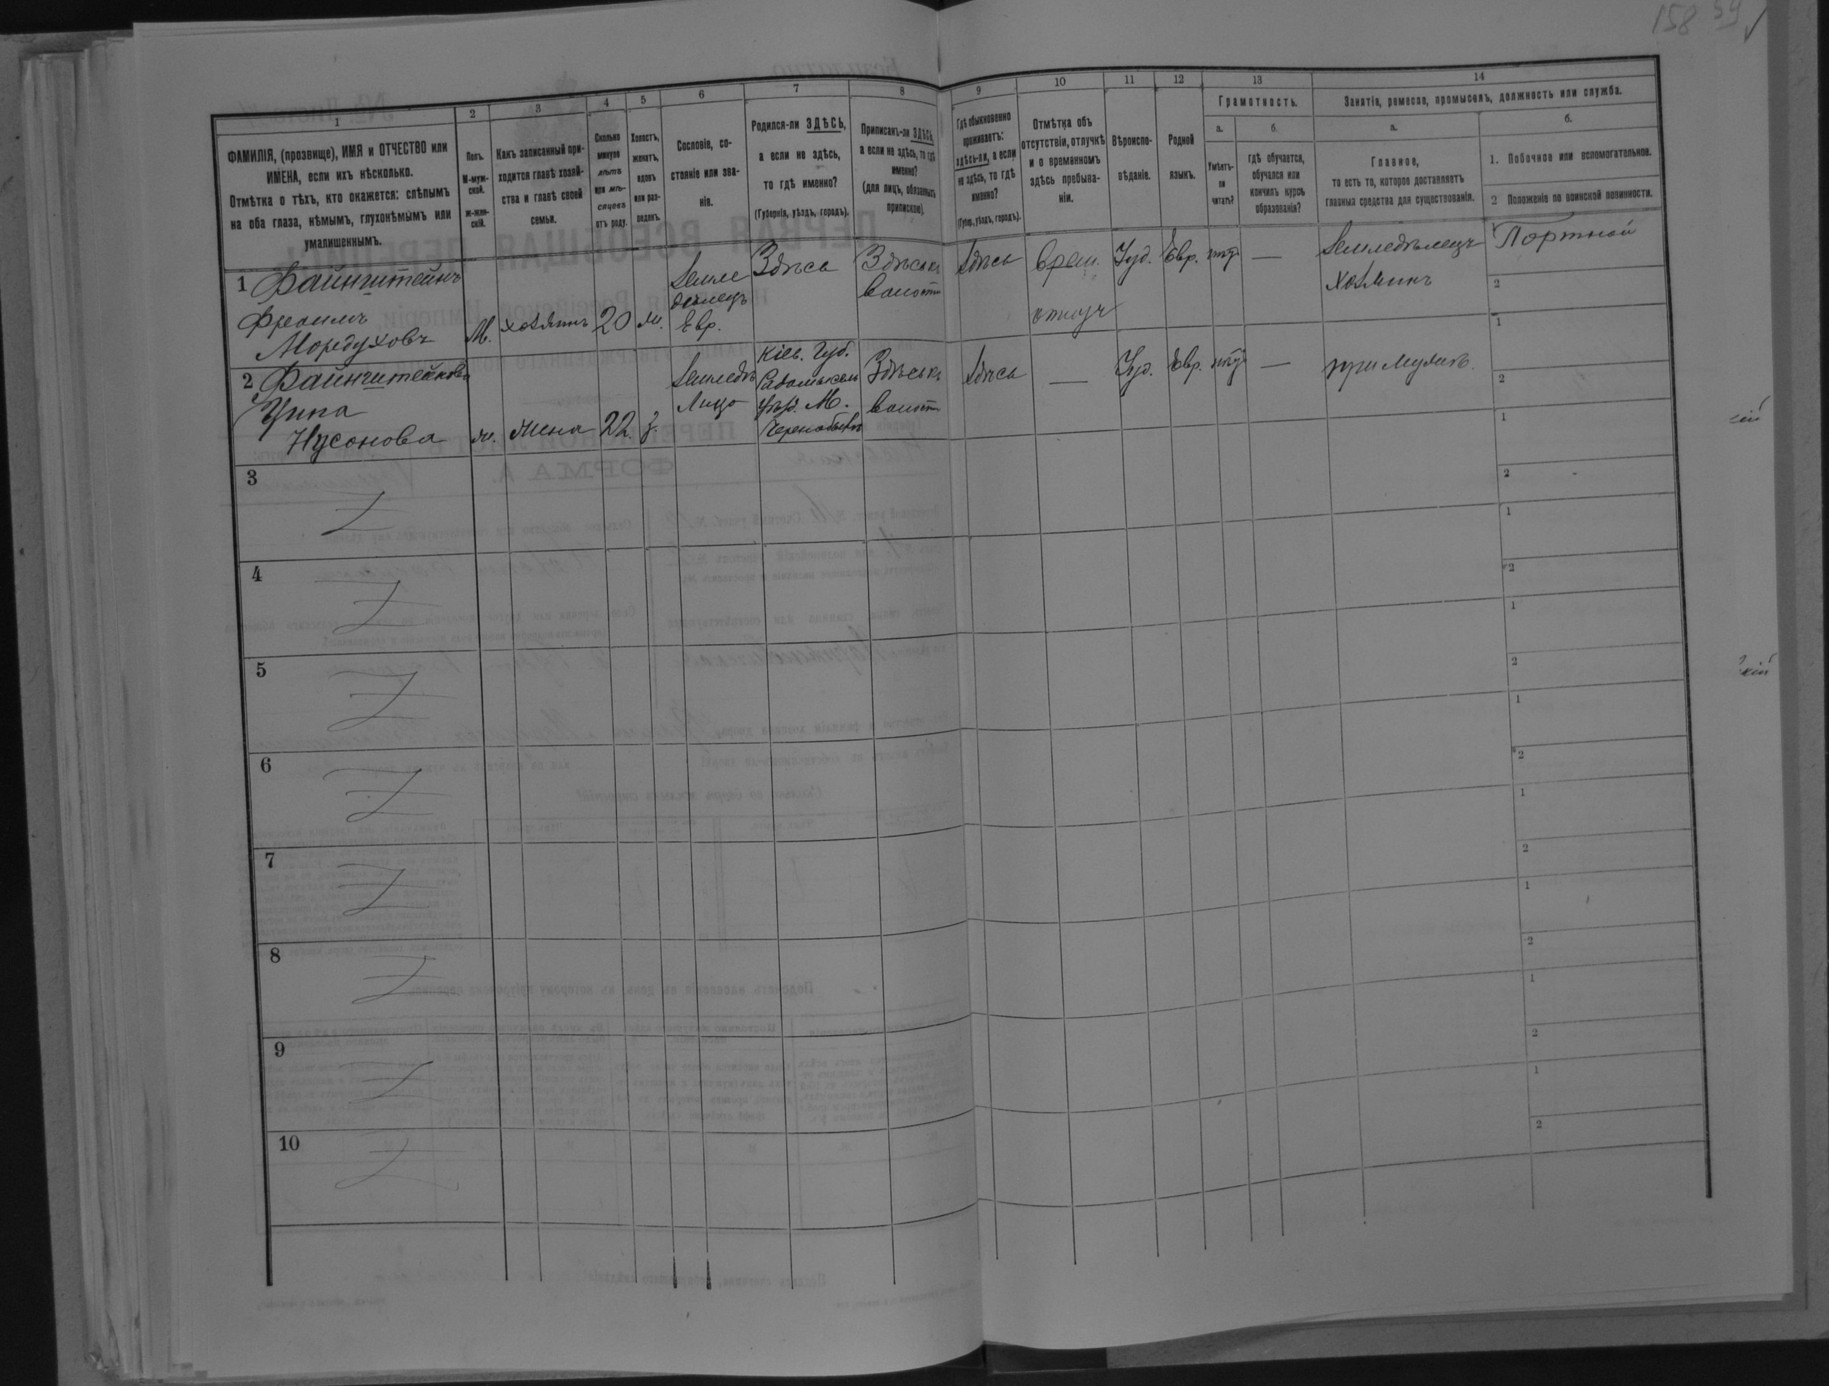 158 59
1
2
3
4
5
6
7
8
9
10
11
12
13
14
ФАМИЛІЯ, (прозвище), ИМЯ и ОТЧЕСТВО или
ИМЕНА, если ихъ нѣсколько.
Отмѣтка о тѣхъ, кто окажется: слѣпымъ
на оба глаза, нѣмымъ, глухонѣмымъ или
умалишеннымъ.
Полъ.
М-муж-
ской.
Ж-жен-
скій.
Какъ записанный при-
ходится главѣ хозяй-
ства и главѣ своей
семьи.
Сколько
минуло
лѣтъ
или мѣ-
сяцевъ
отъ роду.
Холостъ,
женатъ,
вдовъ
или раз-
веденъ.
Сословіе, со-
стояніе или зва-
ніе.
Родился-ли ЗДѢСЬ,
а если не здѣсь,
то гдѣ именно?
(Губернія, уѣздъ, городъ).
Приписанъ-ли ЗДѢСЬ,
а если не здѣсь, то гдѣ
именно?
(для лицъ, обязанныхъ
припискою).
Гдѣ обыкновенно
проживаетъ:
здѣсь-ли, а если
не здѣсь, то гдѣ
именно?
(Губер., уѣздъ, городъ).
Отмѣтка объ
отсутствіи, отлучкѣ
и о временномъ
здѣсь пребыва-
ніи.
Вѣроиспо-
вѣданіе.
Родной
языкъ.
Грамотность.
а.
Умѣетъ-
ли
читать?
б.
гдѣ обучается,
обучался или
кончилъ курсъ
образованія?
Занятія, ремесло, промыселъ, должность или служба.
а.
Главное,
то есть то, которое доставляетъ
главныя средства для существованія.
б.
1. Побочное или вспомогательное.
2 Положеніе по воинской повинности.
1 Файнштейнъ
Фроимъ
Мордуховъ
М.
хозяинъ
20
ж.
Земле
дѣлецъ
Евр.
Здѣсь
Здѣськ.
волост
Здѣсь
врем.
отлуч
Іуд.
Евр.
нѣт
—
Земледѣлецъ
хозяинъ
1 Портной
2
2 Файнштейнова
Ципа
Нусонова
ж.
жена
22
з.
Земледѣ
Кіев. Губ.
Радомысл
уѣзд. М.
Чернобыль
Здѣськ.
волост
Здѣсь
—
Іуд.
Евр.
нѣт
—
при мужѣ.
1
2
3
1
2
4
1
2
5
1
2
6
1
2
7
1
2
8
1
2
9
1
2
10
1
2